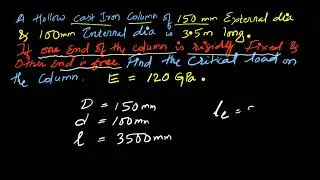 A Hollow Cast Iron Column of 150 mm External dia
& 100mm Internal dia is 3.5m long.
If one End of the column is rigidly Fixed &
Other end is free. Find the Critical load on
the Column. E = 120 GPa.
D = 150mm
d = 100mm
l = 3500mm
le =